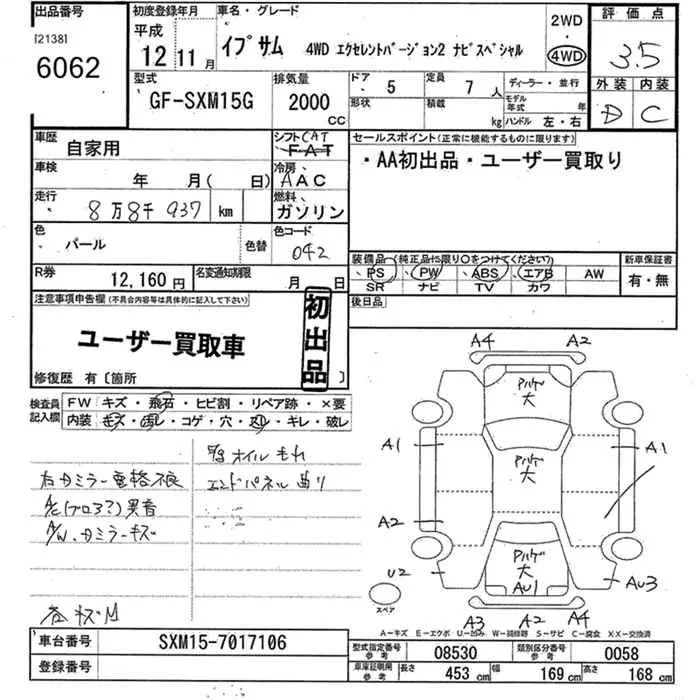 出品番号
[2138]
6062
初度登録年月
平成
12年11月
車名・グレード
イプサム 4WD エクセレントバージョン2 ナビスペシャル
2WD
・
4WD
評価点
3.5
外装 内装
D C
型式
GF-SXM15G
排気量
2000
CC
ドア 5
定員 7 人
形状
積載 kg
ディーラー・並行
モデル年式 年
ハンドル 左・右
車歴
自家用
シフト CAT
FAT
車検
年 月( 日)
冷房
AAC
走行
8万8千937 km
燃料
ガソリン
色
パール
色替
色コード
042
R券
12,160円
名変通知期限
月 日
セールスポイント(正常に機能するものに限ります)
・AA初出品・ユーザー買取り
装備品(純正品に限り○をつけてください)
PS PW ABS エアB AW
SR ナビ TV カワ
新車保証書
有・無
後日品
注意事項申告欄(不具合内容等は具体的に記入して下さい)
ユーザー買取車
初出品
修復歴 有〔箇所 〕
検査員記入欄
FW キズ・飛石・ヒビ割・リペア跡・×要
内装 キズ・汚レ・コゲ・穴・スレ・キレ・破レ
オイルもれ
右カミラー電格不良
エンドパネル曲り
A/C(ブロア?)異音
A/W、カミラーキズ
各キズM
A4 A2
パルゲ
大
A1 A1
パルゲ
大
A2
パルゲ
大
AU1
U2 AU3
スペア
A3 A2 A4
A－キズ E－エクボ U－凹み W－補修跡 S－サビ C－腐食 XX－交換済
車台番号
SXM15-7017106
登録番号
型式指定番号
参考
08530
類別区分番号
参考
0058
車庫証明用
参考
長さ 453 cm
幅 169 cm
高さ 168 cm